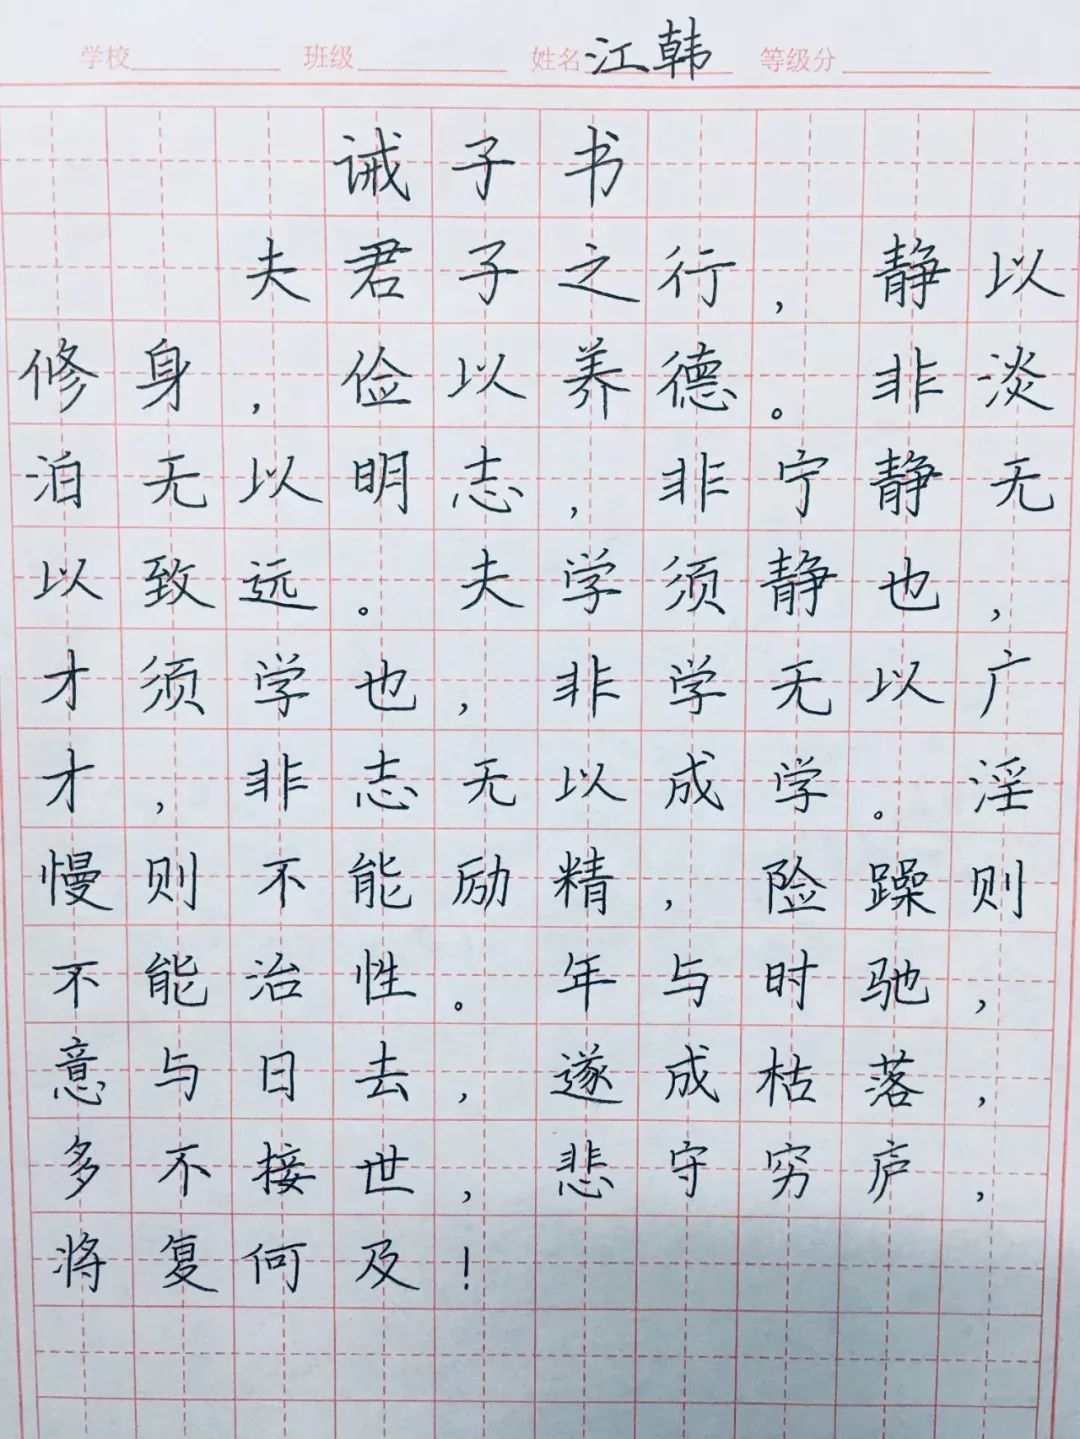 学校 班级 姓名 江韩 等级分
诫子书
夫君子之行，静以
修身，俭以养德。非淡
泊无以明志，非宁静无
以致远。夫学须静也，
才须学也，非学无以广
才，非志无以成学。淫
慢则不能励精，险躁则
不能治性。年与时驰，
意与日去，遂成枯落，
多不接世，悲守穷庐，
将复何及！